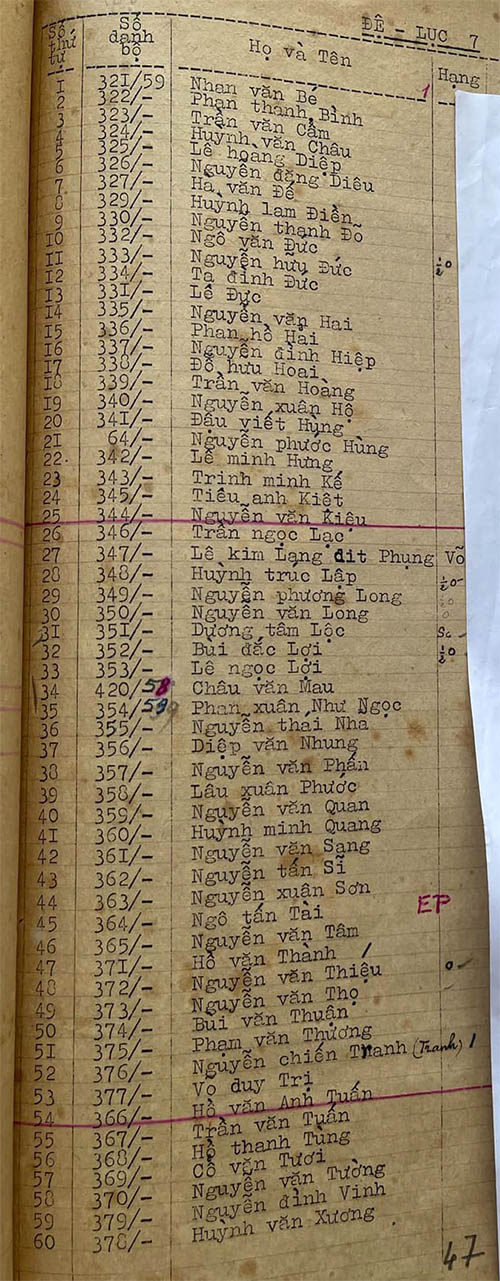 ĐÊ - LỤC 7
Số thứ tự Số danh bộ Họ và Tên Hạng
1 321/59 Nhan văn Bé 1
2 322/- Phan thanh Bình
3 323/- Trần văn Cẩm
4 324/- Huỳnh văn Châu
5 325/- Lê hoàng Diệp
6 326/- Nguyễn đăng Diêu
7 327/- Hà văn Đế
8 329/- Huỳnh lam Điền
9 330/- Nguyễn thanh Đỗ
10 332/- Ngô văn Đức
11 333/- Nguyễn hữu Đức ½0
12 334/- Tạ đình Đức
13 331/- Lê Đực
14 335/- Nguyễn văn Hai
15 336/- Phan hồ Hải
16 337/- Nguyễn đình Hiệp
17 338/- Đỗ hưu Hoai
18 339/- Trần văn Hoàng
19 340/- Nguyễn xuân Hộ
20 341/- Đấu viết Hùng
21 64/- Nguyễn phước Hùng
22 342/- Lê minh Hưng
23 343/- Trinh minh Kế
24 345/- Tiêu anh Kiệt
25 344/- Nguyễn văn Kiệu
26 346/- Trần ngọc Lạc
27 347/- Lê kim Lạng dit Phụng Võ
28 348/- Huỳnh trúc Lập ½0-
29 349/- Nguyễn phương Long
30 350/- Nguyễn văn Long
31 351/- Dương tâm Lộc
32 352/- Bùi đắc Lợi ½0
33 353/- Lê ngọc Lợi
34 420/58 Châu văn Mau
35 354/59 Phan xuân Như Ngọc
36 355/- Nguyễn thai Nhã
37 356/- Diệp văn Nhung
38 357/- Nguyễn văn Phấn
39 358/- Lâu xuân Phước
40 359/- Nguyễn văn Quan
41 360/- Huỳnh minh Quang
42 361/- Nguyễn văn Sang
43 362/- Nguyễn tấn Sĩ
44 363/- Nguyễn xuân Sơn
45 364/- Ngô tấn Tài EP
46 365/- Nguyễn văn Tâm
47 371/- Hồ văn Thành /
48 372/- Nguyễn văn Thiệu 0-
49 373/- Nguyễn văn Thọ
50 374/- Bùi văn Thuận
51 375/- Phạm văn Thương
52 376/- Nguyễn chiến Tranh (Tranh) /
53 377/- Võ duy Trị
54 366/- Hồ văn Anh Tuấn
55 367/- Trần văn Tuấn
56 368/- Hồ thanh Tùng
57 369/- Cô văn Tươi
58 370/- Nguyễn văn Tường
59 379/- Nguyễn đình Vinh
60 378/- Huỳnh văn Xương
47